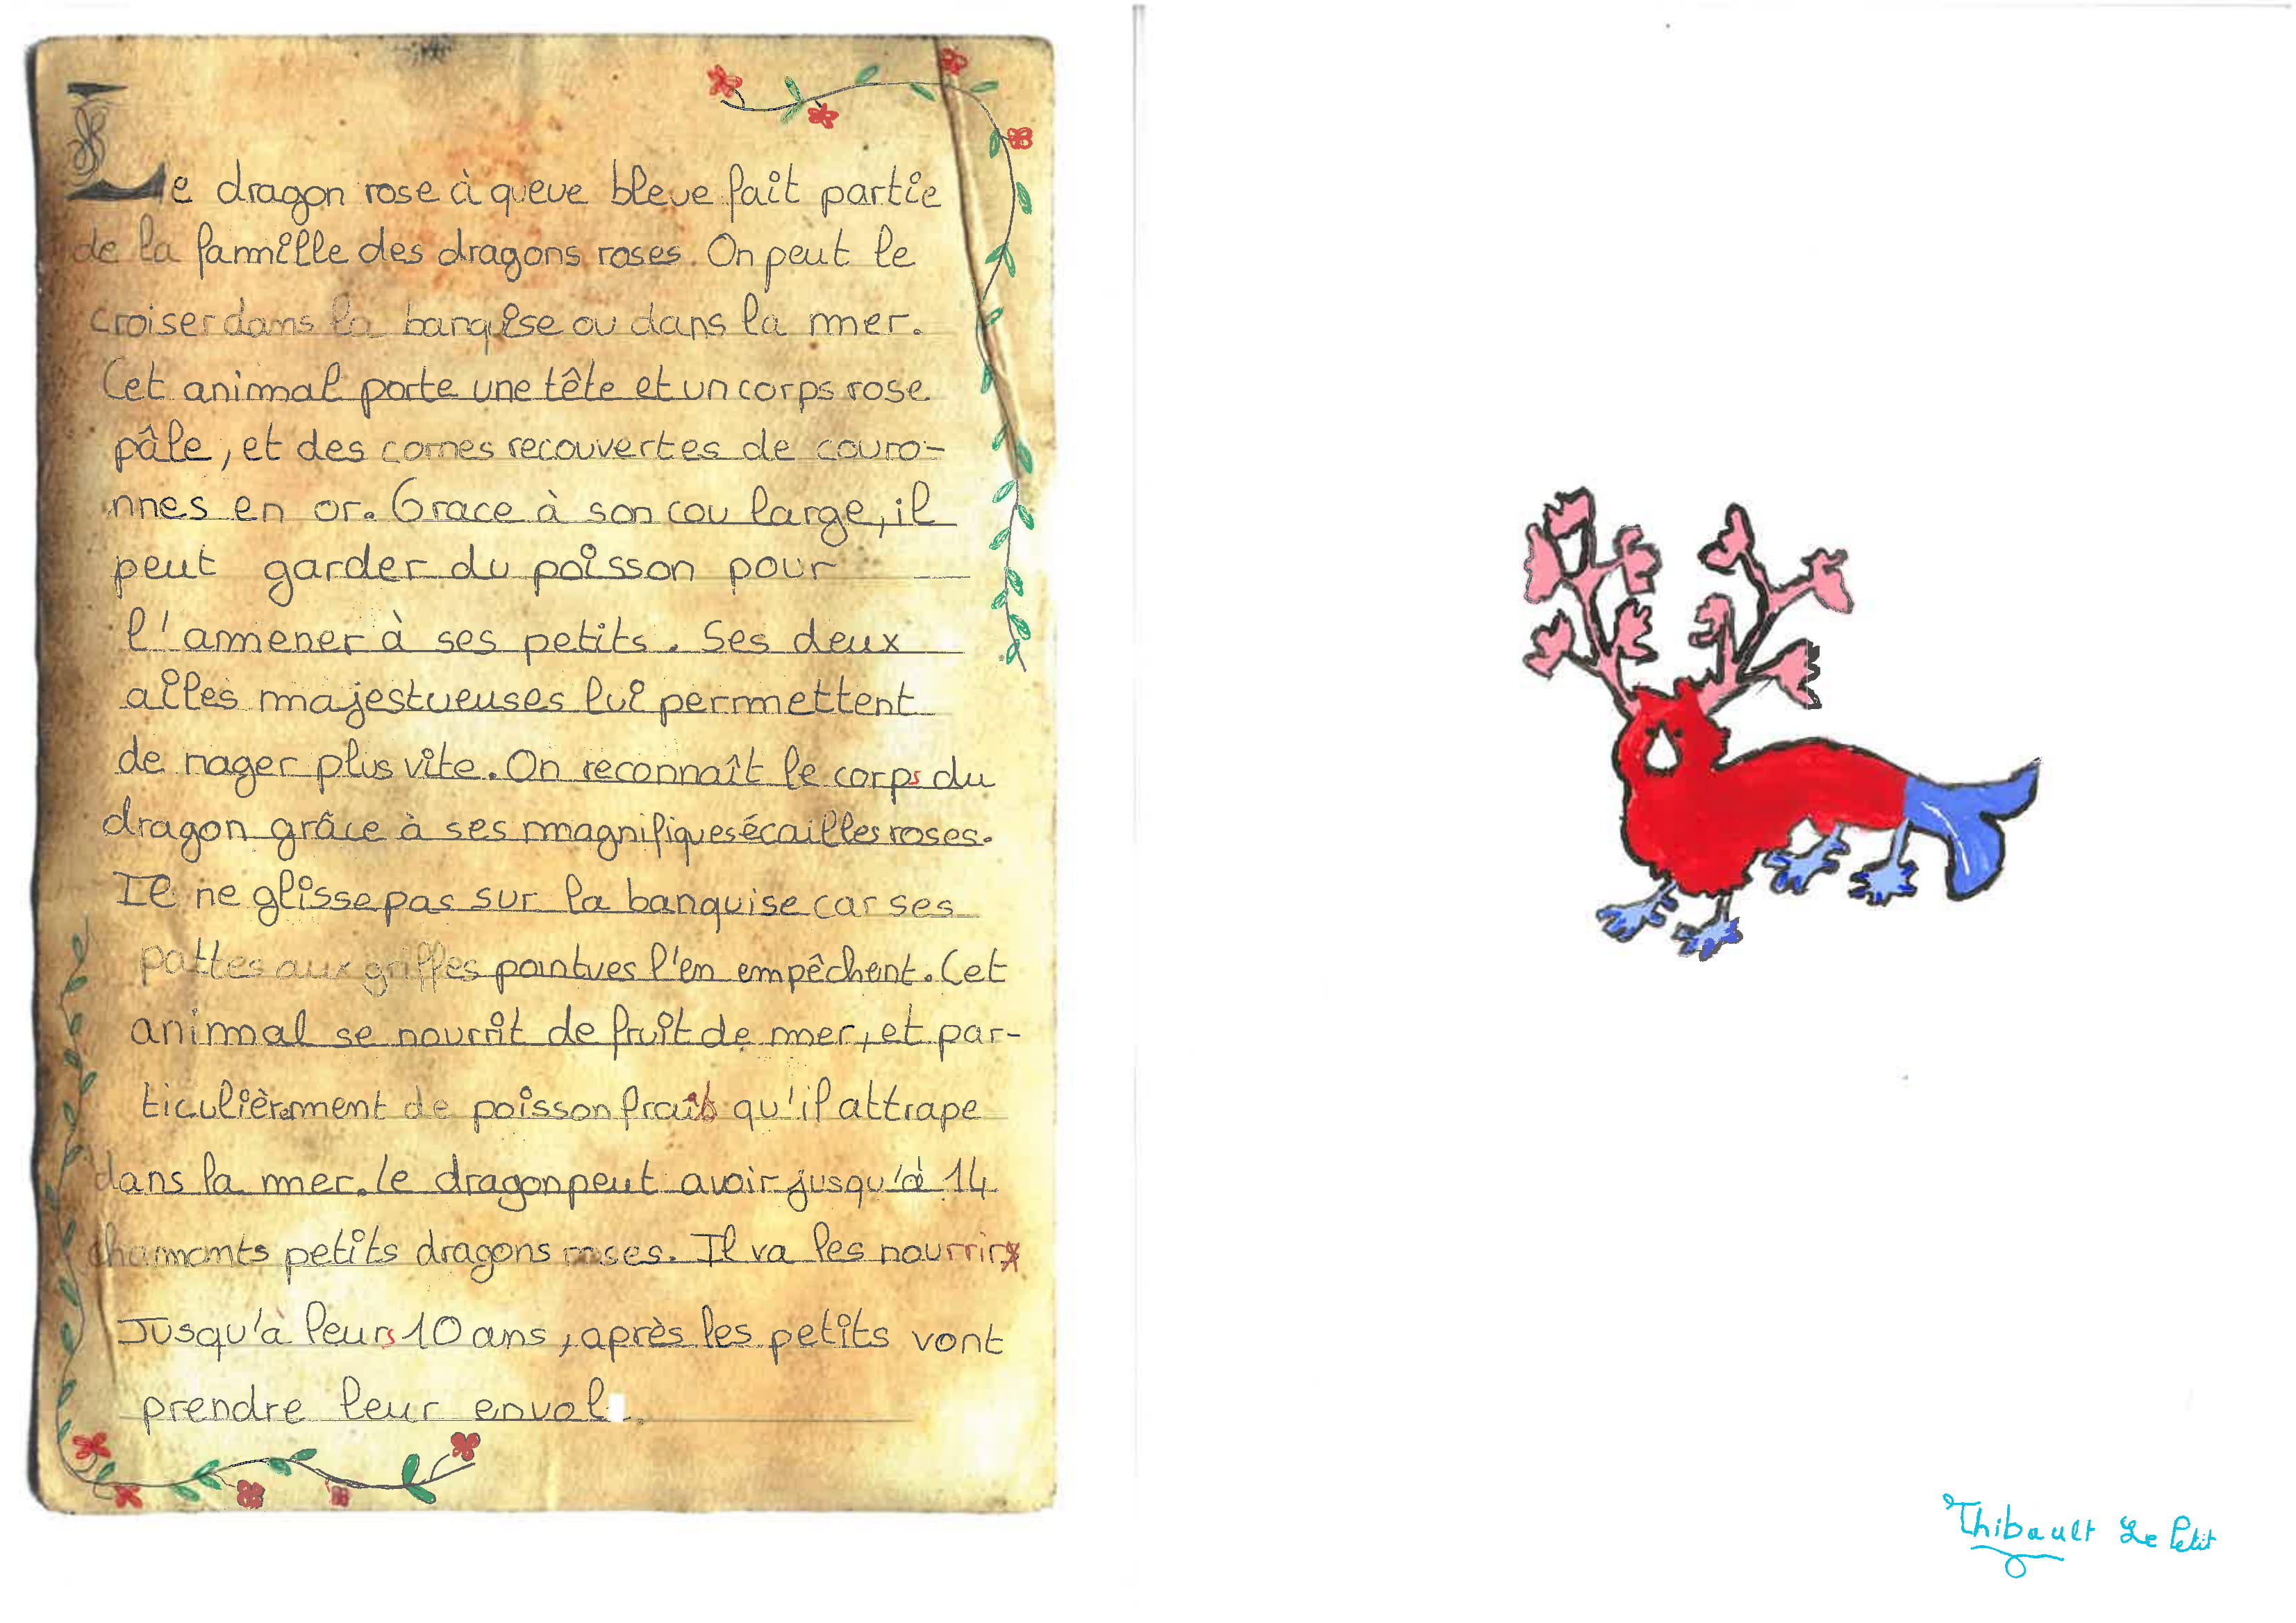 Le dragon rose à queue bleue fait partie
de la famille des dragons roses. On peut le
croiser dans la banqise ou dans la mer.
Cet animal porte une tête et un corps rose
pâle, et des cornes recouvertes de couro-
nnes en or. Grace à son cou large, il
peut garder du poisson pour
l'amener à ses petits. Ses deux
ailes majestueuses lui permettent
de nager plus vite. On reconnaît le corps du
dragon grâce à ses magnifiques écailles roses.
Il ne glisse pas sur la banquise car ses
pattes aux griffes pointues l'en empêchent. Cet
animal se nourrit de fruit de mer, et par-
ticulièrement de poisson frais qu'il attrape
dans la mer. le dragon peut avoir jusqu'à 14
charmants petits dragons roses. Il va les nourrir
Jusqu'à leurs 10 ans, après les petits vont
prendre leur envol.
Thibault Le Petit